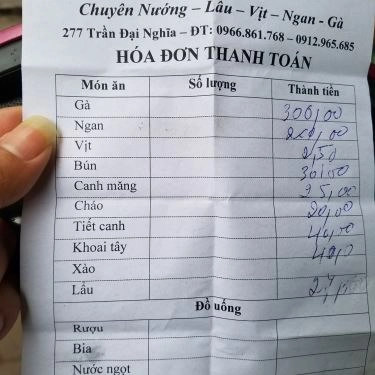 Chuyên Nướng – Lẩu – Vịt – Ngan - Gà
277 Trần Đại Nghĩa – ĐT: 0966.861.768 – 0912.965.685
HÓA ĐƠN THANH TOÁN
Món ăn Số lượng Thành tiền
Gà 300,00
Ngan
Vịt 2,50
Bún 30,00
Canh măng 25,00
Cháo 20,00
Tiết canh 40,00
Khoai tây 40,0
Xào
Lẩu
Đồ uống
Rượu
Bia
Nước ngọt